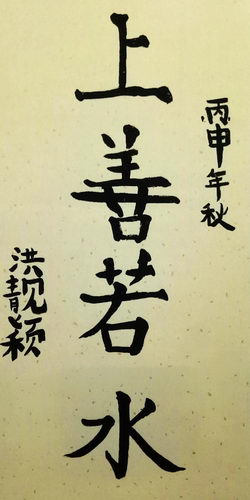 丙申年秋
上善若水
洪靓颖